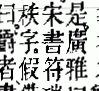 是廣雅
宋書符
秩字假
曰爵者